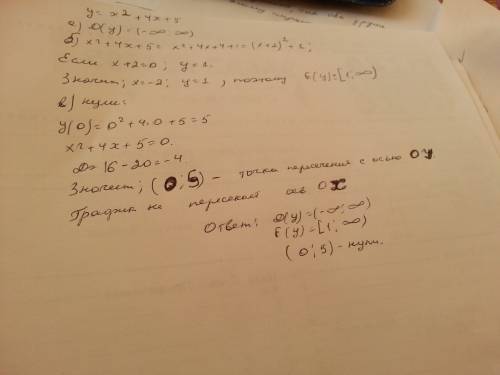 y = x² + 4x + 5
а) D(y) = (-∞; ∞)
б) x² + 4x + 5 = x² + 4x + 4 + 1 = (x+2)² + 1;
Если x + 2 = 0; y = 1.
Значит; x = -2; y = 1, поэтому E(y) = [1; ∞)
в) нули:
y(0) = 0² + 4·0 + 5 = 5
x² + 4x + 5 = 0.
D = 16 - 20 = -4.
Значит; (0; 5) - точка пересечения с осью Oy.
График не пересекает ось Ox
Ответ: D(y) = (-∞; ∞)
E(y) = [1; ∞)
(0; 5) - нули.